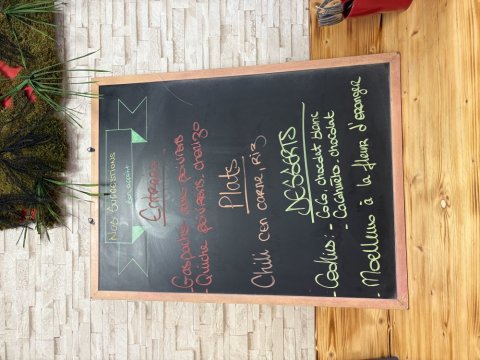 NOS SUGGESTIONS
Entrées
- Gaspacho aux poivrons
- Quiche poivrons, chorizo
Plats
Chili con carne, riz
DESSERTS
- Cookies: - Coco, chocolat blanc
- Cacahuète, chocolat
- Moelleux à la fleur d'oranger